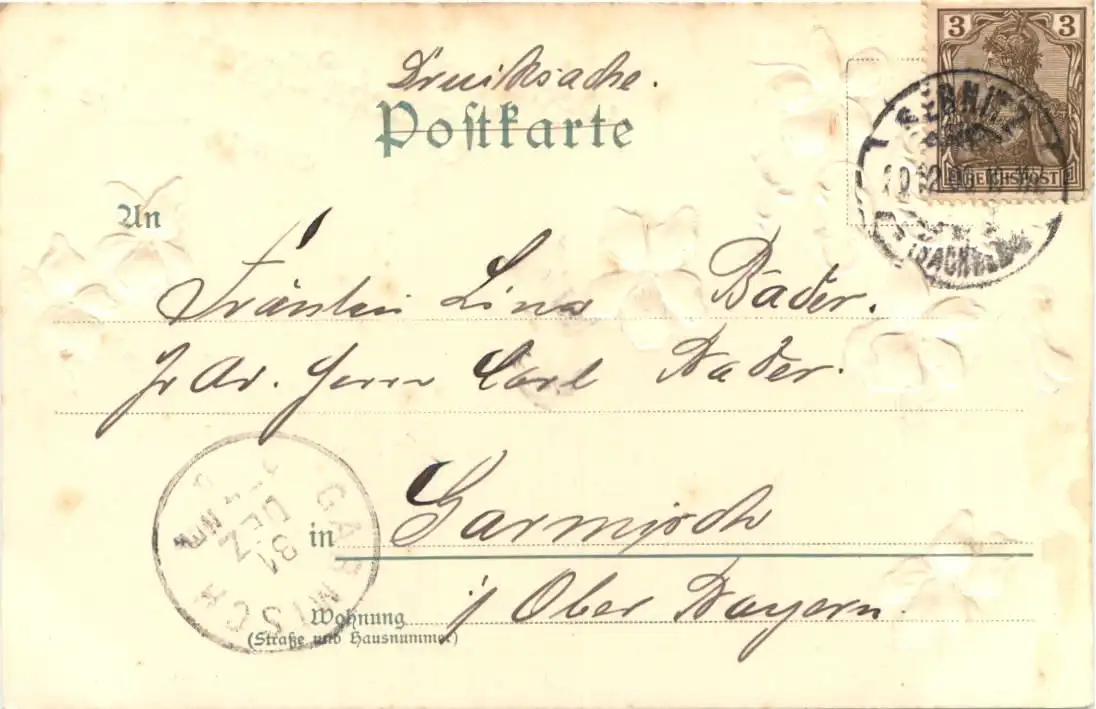 Drucksache.
Postkarte
3 3
REICHSPOST
SEBNITZ
(SACHSEN)
An
Fräulein Lina Bader.
pr Ad. Herrn Carl Bader.
GARMISCH
31
DEZ
in Garmisch
i/ Ober Bayern.
Wohnung
(Straße und Hausnummer)